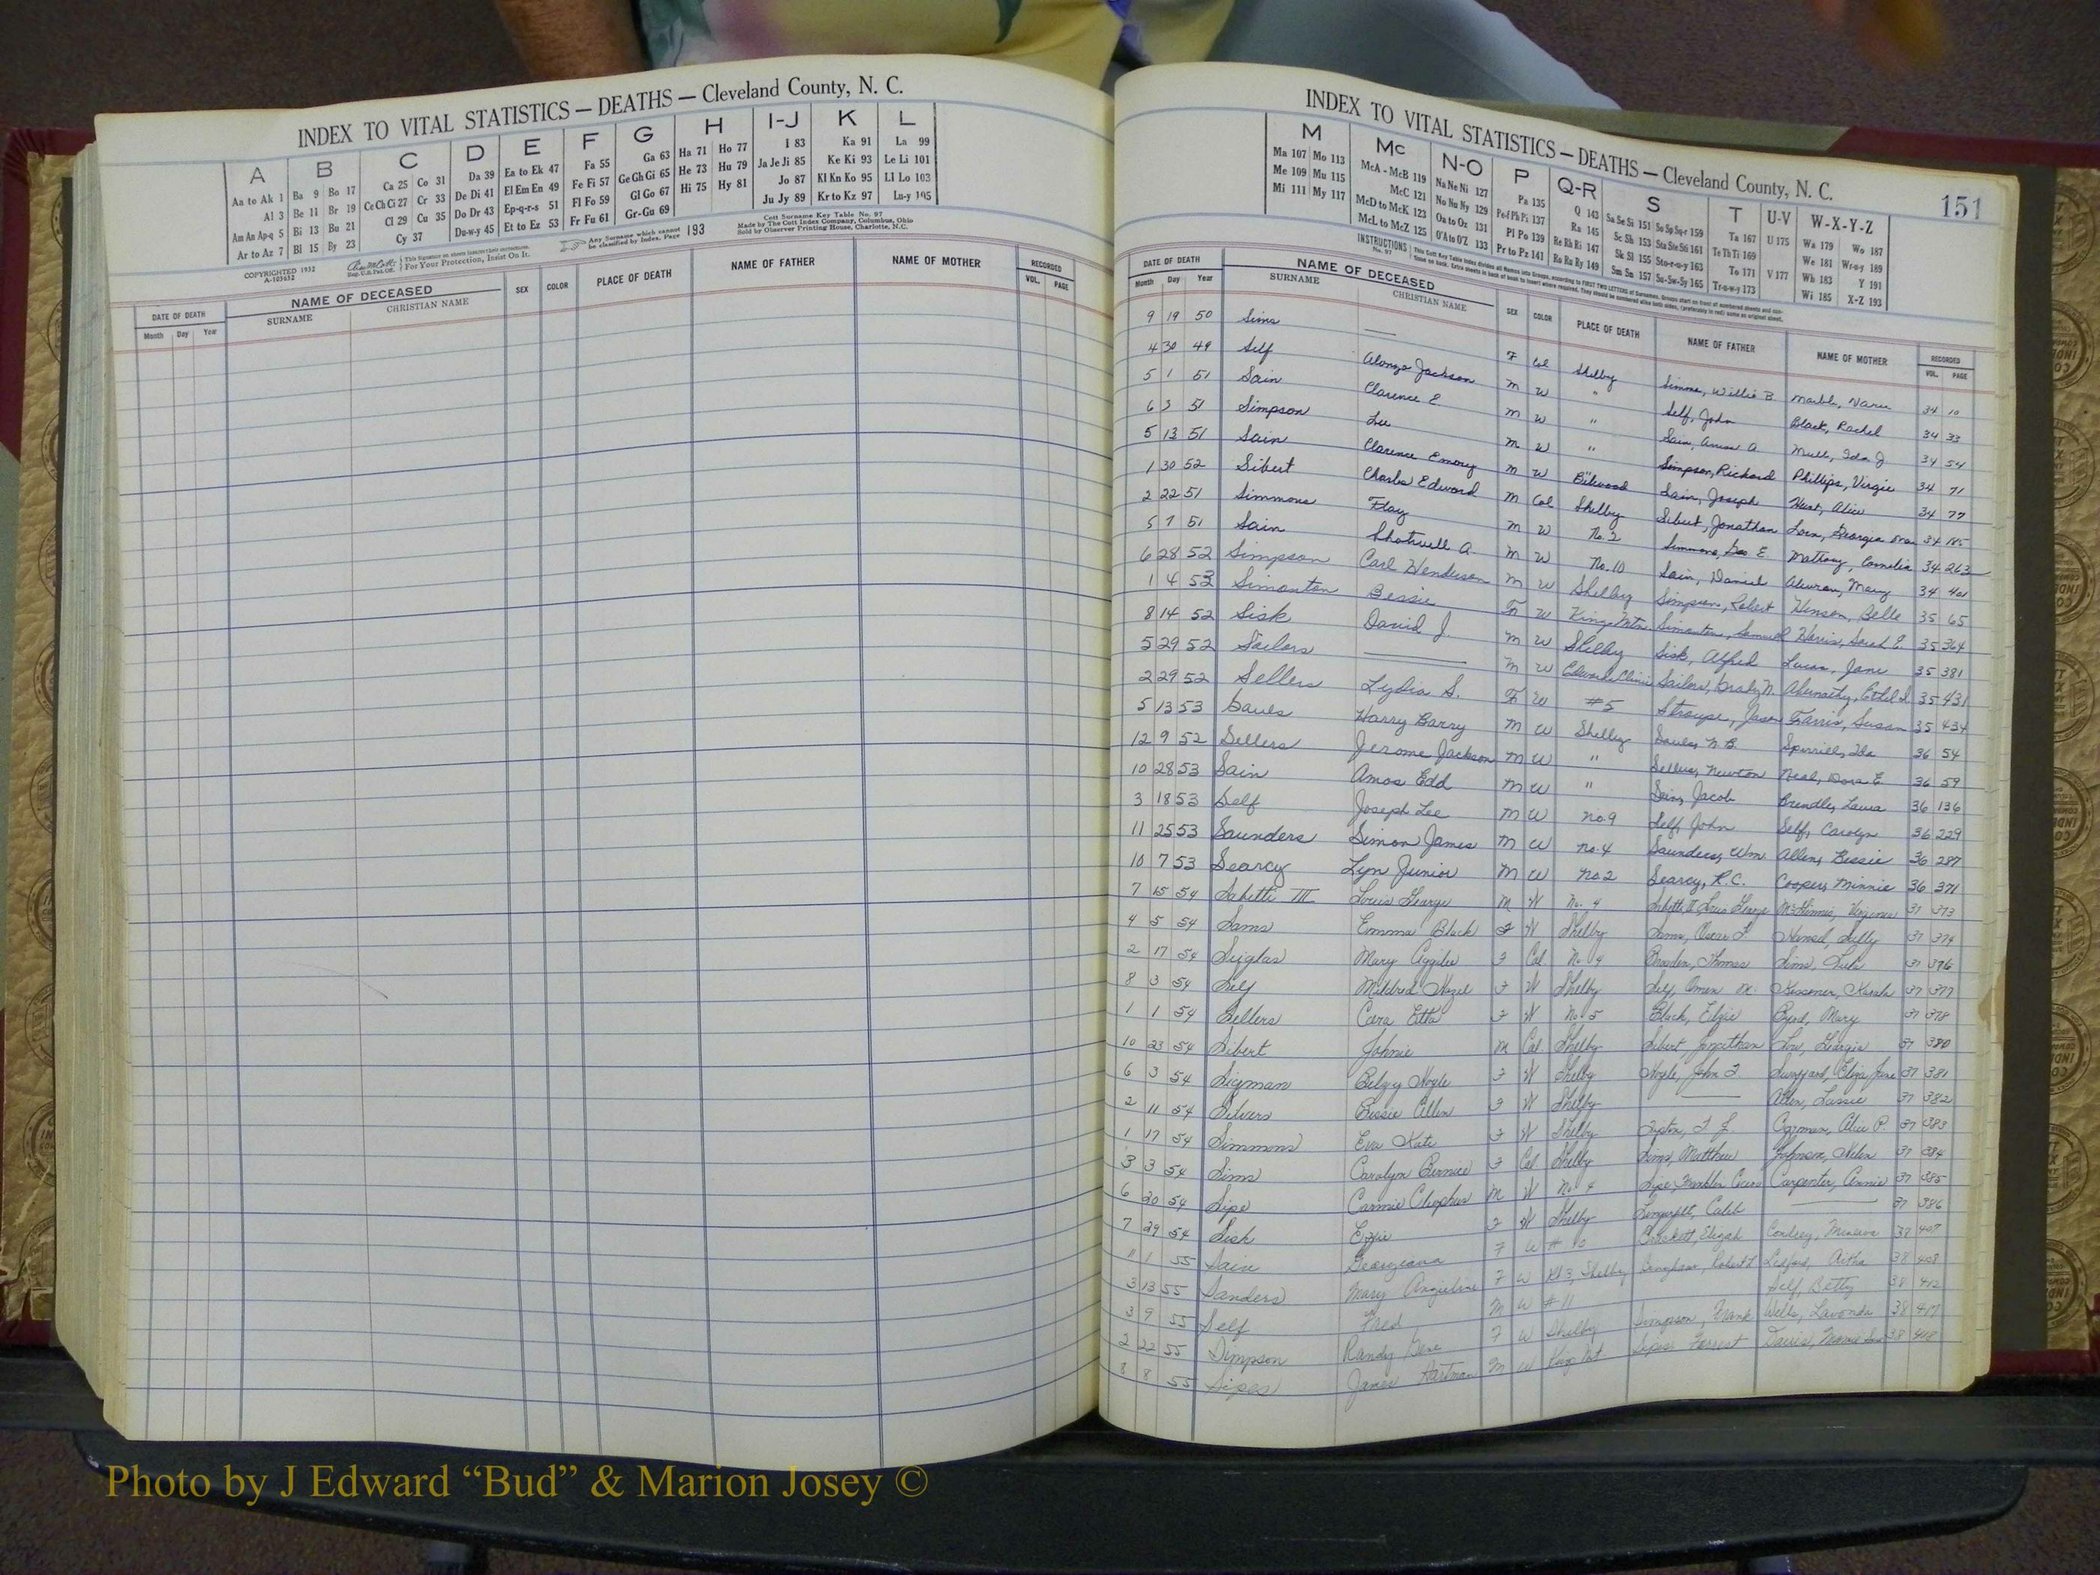 INDEX TO VITAL STATISTICS — DEATHS — Cleveland County, N. C.
A B C D E F G H I-J K L
Aa to Ak 1 Ba 9 Bo 17 Ca 25 Co 31 Da 39 Ea to Ek 47 Fa 55 Ga 63 Ha 71 Ho 77 I 83 Ka 91 La 99
Al 3 Be 11 Br 19 Ce Ch Ci 27 Cr 33 De Di 41 El Em En 49 Fe Fi 57 Ge Gh Gi 65 He 73 Hu 79 Ja Je Ji 85 Ke Ki 93 Le Li 101
Am An Ap-q 5 Bi 13 Bu 21 Cl 29 Cu 35 Do Dr 43 Ep-q-r-s 51 Fl Fo 59 Gl Go 67 Hi 75 Hy 81 Jo 87 Kl Kn Ko 95 Ll Lo 103
Ar to Az 7 Bl 15 By 23 Cy 37 Du-w-y 45 Et to Ez 53 Fr Fu 61 Gr-Gu 69 Ju Jy 89 Kr to Kz 97 Lu-y 105
COPYRIGHTED 1932
A-105632
For Your Protection, Insist On It.
Any Surname which cannot be classified by Index, Page 193
Cott Surname Key Table No. 97
Made by The Cott Index Company, Columbus, Ohio
Sold by Observer Printing House, Charlotte, N.C.
DATE OF DEATH NAME OF DECEASED SEX COLOR PLACE OF DEATH NAME OF FATHER NAME OF MOTHER RECORDED
Month Day Year SURNAME CHRISTIAN NAME VOL. PAGE
INDEX TO VITAL STATISTICS — DEATHS — Cleveland County, N. C.
151
M Mc N-O P Q-R S T U-V W-X-Y-Z
Ma 107 Mo 113 McA - McB 119 Na Ne Ni 127 Pa 135 Q 143 Sa Se Si 151 So Sp Sq-r 159 Ta 167 U 175 Wa 179 Wo 187
Me 109 Mu 115 McC 121 No Nu Ny 129 Pe-f Ph Pi 137 Ra 145 Sc Sh 153 Sta Ste Sti 161 Te Th Ti 169 We 181 Wr-u-y 189
Mi 111 My 117 McD to McK 123 Oa to Oz 131 Pl Po 139 Re Rh Ri 147 Sk Sl 155 Sto-r-u-y 163 To 171 V 177 Wh 183 Y 191
McL to McZ 125 O'A to O'Z 133 Pr to Pz 141 Ro Ru Ry 149 Sm Sn 157 Su-Sw-Sy 165 Tr-u-w-y 173 Wi 185 X-Z 193
DATE OF DEATH NAME OF DECEASED SEX COLOR PLACE OF DEATH NAME OF FATHER NAME OF MOTHER RECORDED
Month Day Year SURNAME CHRISTIAN NAME VOL. PAGE
9 19 50 Sims — F Col Shelby Simms, Willie B 34 10
4 30 49 Self Alonzo Jackson M W " Self, John Black, Rachel 34 33
5 1 51 Sain Clarence E M W " Sain, A Mull, Ida J 34 54
6 3 51 Simpson Lee M W " Simpson, Richard Phillips, Virgie 34 71
5 13 51 Sain Clarence Emory M W Belwood Sain, Joseph Hunt, Alice 34 77
1 30 52 Sibert Charles Edward M Col Shelby Sibert, Jonathan Georgia 34 185
2 22 51 Simmons Flay M W No. 2 Simmons, Geo E. Cornelia 34 263
5 7 51 Sain Shotwell A. M W No. 10 Sain, Daniel Mary 34 401
6 28 52 Simpson Carl Henderson M W Shelby Simpson, Robert Hinson, Belle 35 65
1 4 53 Simonton Bessie F W Kings Mtn. Simonton, Samuel Harris, Sarah E. 35 364
8 14 52 Sisk David J. M W Shelby Sisk, Alfred Lucas, Jane 35 381
5 29 52 Sailors — M W Edwards Clinic Sailors, Grady N. Abernathy, Ethel L. 35 431
2 29 52 Sellers Lydia S. F W #5 Stroupe, Jason Farris, Susan 35 434
5 13 53 Sauls Harry Barry M W Shelby Sauls, N.B. Spirrill, Ida 36 54
12 9 52 Sellers Jerome Jackson M W " Sellers, Newton Neal, Dora E 36 59
10 28 53 Sain Amos Edd M W " Sain, Jacob Brendle, Laura 36 136
3 18 53 Self Joseph Lee M W No. 9 Self, John Self, Carolyn 36 229
11 25 53 Saunders Simon James M W No. 4 Saunders, Wm. Allen, Bessie 36 287
10 7 53 Searcy Lyn Junior M W No 2 Searcy, R.C. Cooper, Minnie 36 371
7 15 54 Sabetti III Louis George M W No. 4 McGinnis, Virginia 37 373
4 5 54 Sams Emma Black F W Shelby Sams, Oscar F. Sally 37 374
2 17 54 Mary F Col No 4 Thomas Sims, 37 376
8 3 54 Self Mildred Hazel F W Shelby Self, Sarah 37 377
1 1 54 Sellers Cora Etta F W No 5 Black, Byrd, Mary 37 378
10 23 54 Sibert Johnie M Col. Shelby Sibert, Jonathan Love, Georgia 37 380
6 3 54 Sigman Betsy Hoyle F W Shelby Hoyle, John F. Eliza Jane 37 381
2 11 54 Silvers Bessie Allen F W Shelby — Allen, Lassie 37 382
1 17 54 Simmons Eva Kate F W Shelby Alice P. 37 383
3 3 54 Sims Carolyn Bernice F Col Shelby Sims, Matthew Johnson, Helen 37 384
6 20 54 Sipe Carmie Cleophus M W No 4 Sipe, Franklin Cicero Carpenter, 37 385
7 29 54 Sisk F W Shelby Lingerfelt, Caleb — 37 386
11 1 55 Sain Georgiana F W #10 Elizah Minerva 38 407
3 13 55 Sanders Mary Angeline F W Rt 3, Shelby Robert L Ledford, 38 408
3 9 55 Self Fred M W #11 Self, Betty 38 412
2 22 55 Simpson Randy Gene F W Shelby Simpson, Frank Wells, Lavonda 38 417
8 8 55 Sipes James Hartman M W Sipes Forrest Davis, 38 418
Photo by J Edward “Bud” & Marion Josey ©